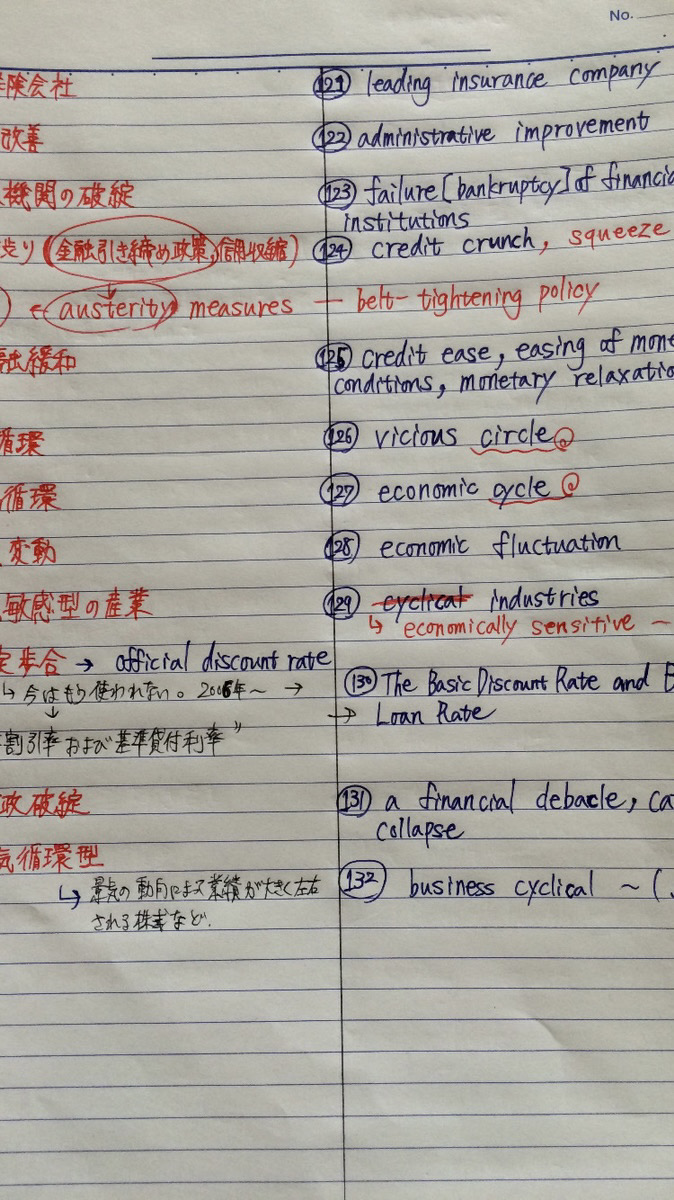 No.
険会社 (121) leading insurance company
改善 (122) administrative improvement
機関の破綻 (123) failure [bankruptcy] of financia
institutions
渋り (金融引き締め政策, 信用収縮) (124) credit crunch, squeeze
) ← austerity measures — belt-tightening policy
融緩和 (125) credit ease, easing of mone
conditions, monetary relaxatio
循環 (126) vicious circle
循環 (127) economic cycle
変動 (128) economic fluctuation
敏感型の産業 (129) cyclical industries
↳ economically sensitive ~
定歩合 → official discount rate
↳ 今はもう使われない。2006年~ → (130) The Basic Discount Rate and
↓ → Loan Rate
割引率および基準貸付利率"
政破綻 (131) a financial debacle, ca
collapse
気循環型 (132) business cyclical ~ (
↳ 景気の動向によって業績が大きく左右
される株式など.